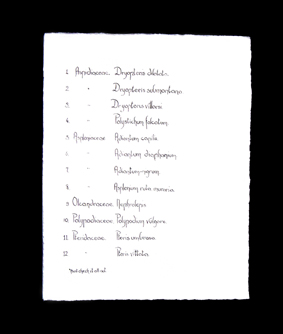 1. Aspidiaceae. Dryopteris dilatata.
2. " Dryopteris submontana
3. " Dryopteris villarii
4. " Polystichum falcatum
5. Aspleniaceae Adiantum
6. " Adiantum diaphanum
7. " Adiantum-nigrum
8. " Asplenium ruta muraria
9. Oleandraceae. Nephrolepis
10. Polypodiaceae Polypodium vulgare
11. Pteridaceae. Pteris umbrosa
12. " Pteris vittata